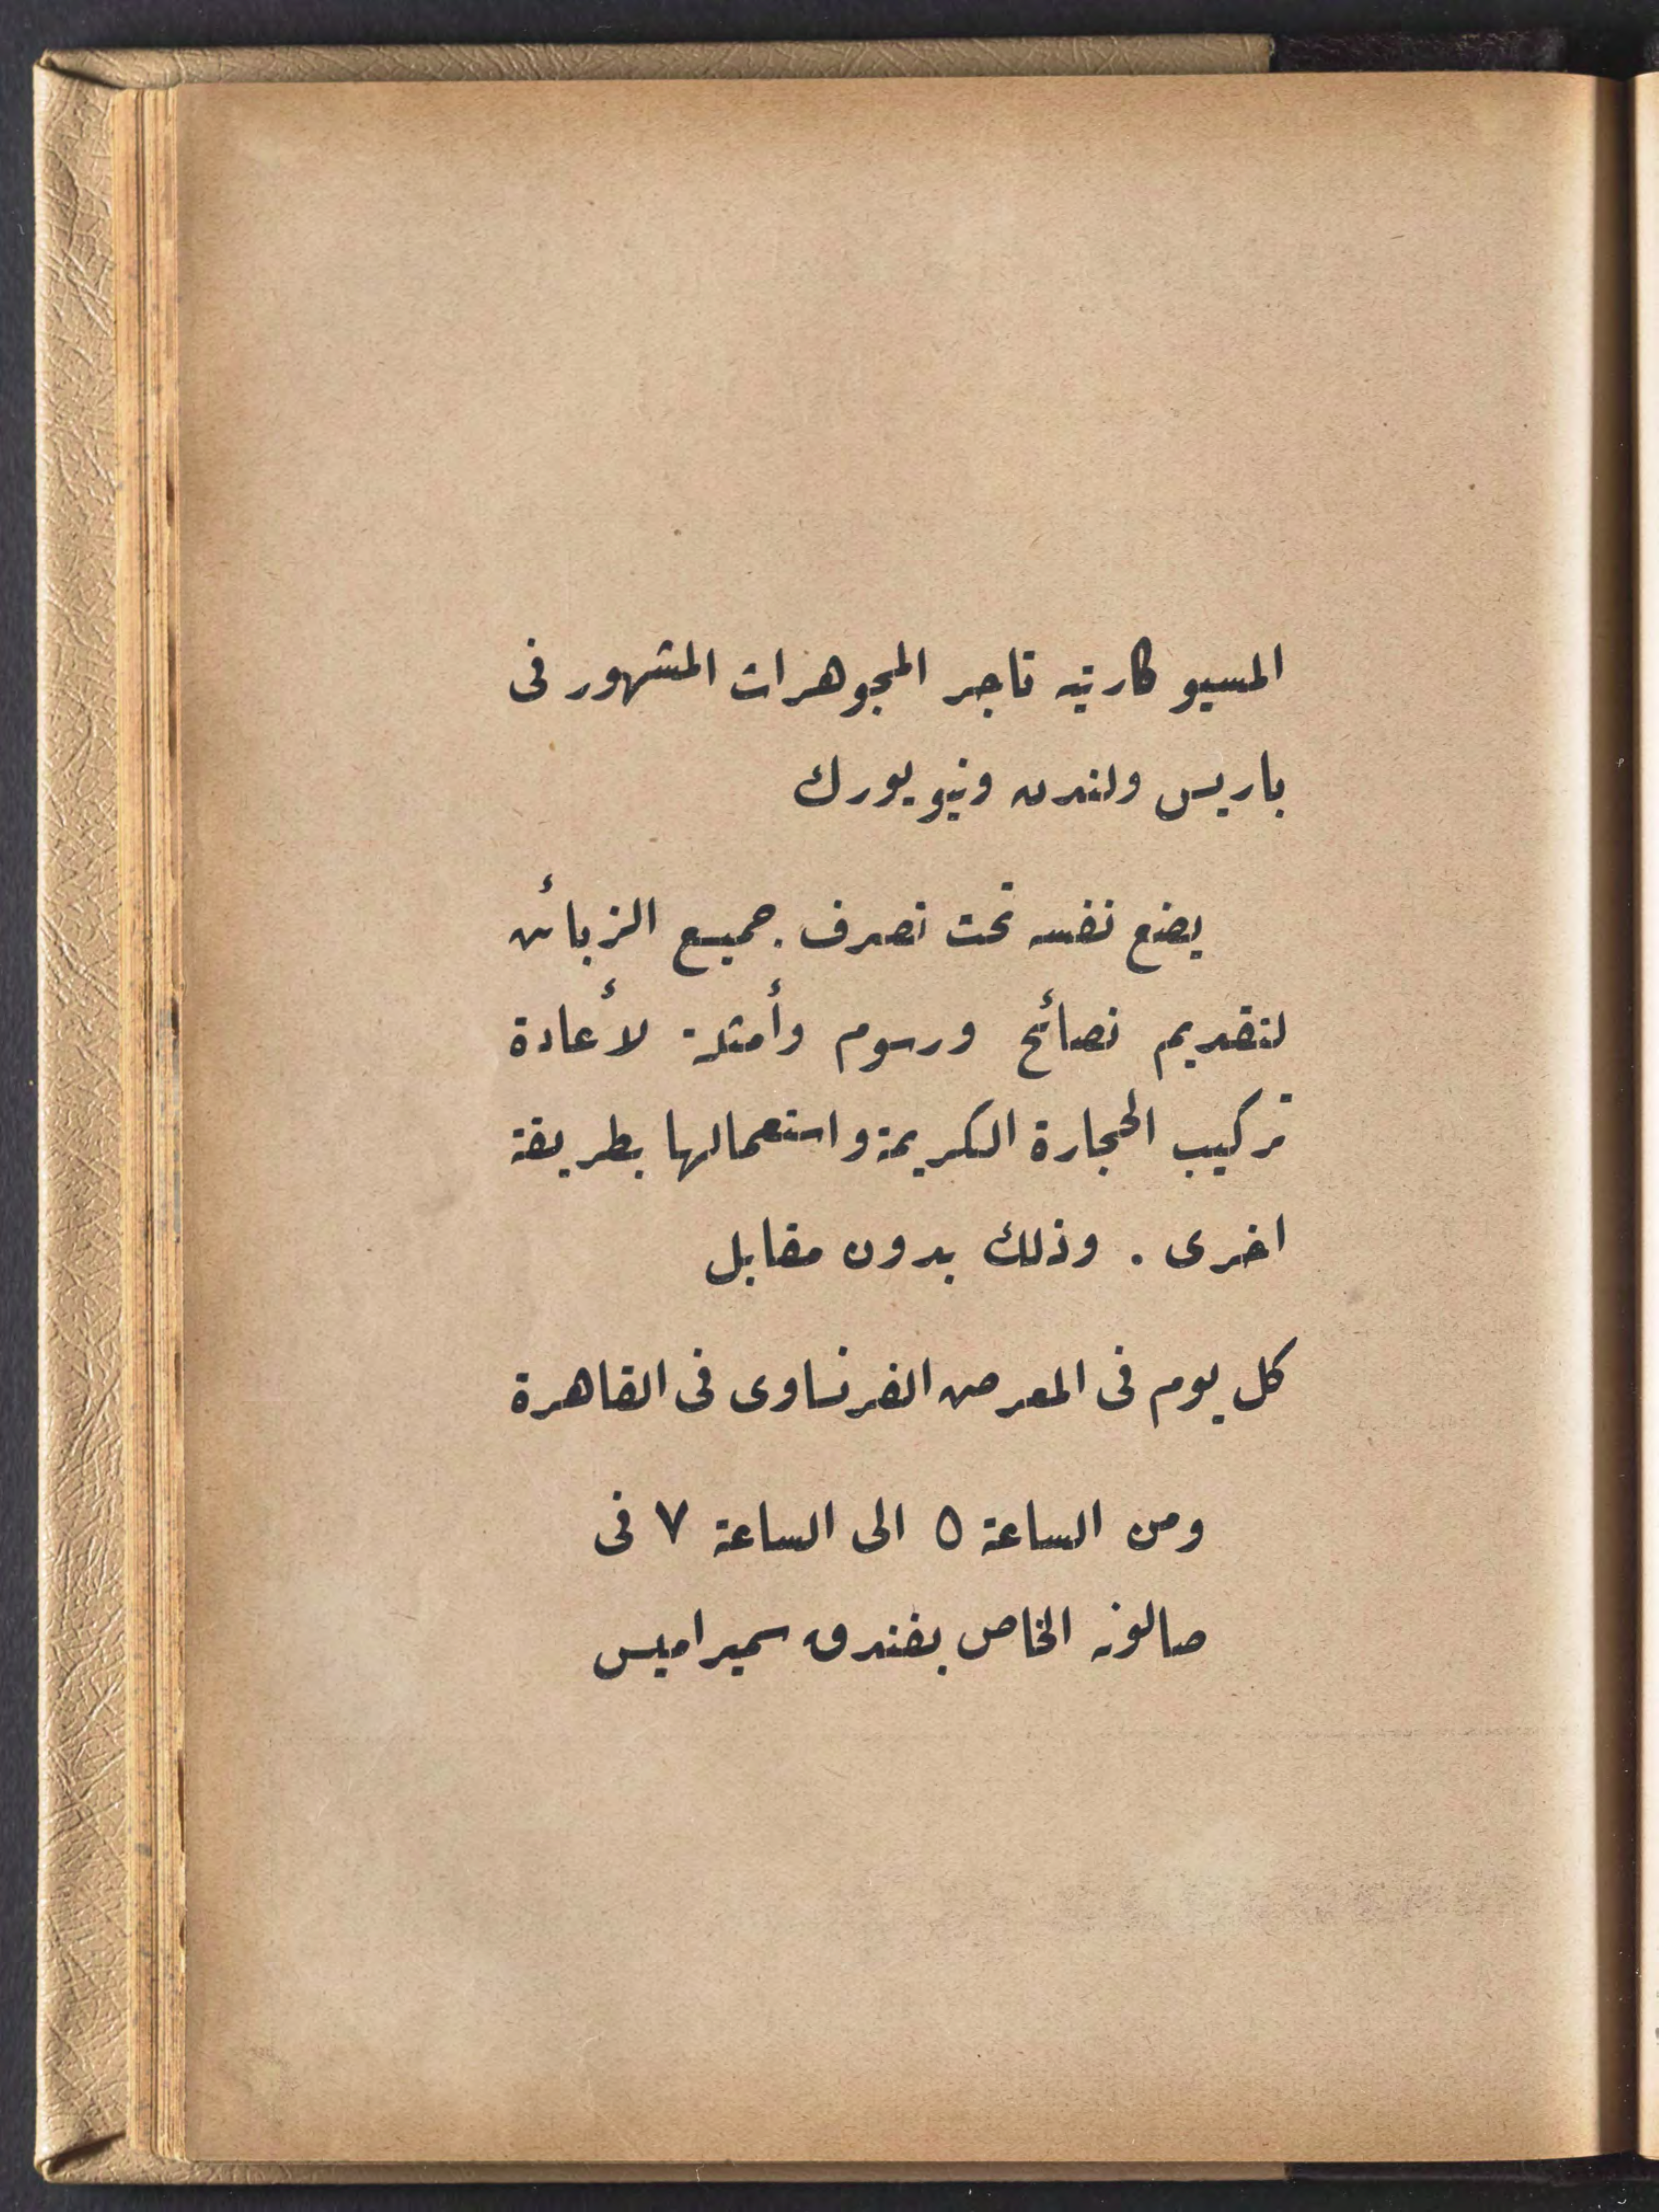 المسيو كارتيه تاجر المجوهرات المشهور فى
باريس ولندن ونيويورك
يضع نفسه تحت تصرف جميع الزبائن
لتقديم نصائح ورسوم وأمثلة لأعادة
تركيب الحجارة الكريمة واستعمالها بطريقة
اخرى . وذلك بدون مقابل
كل يوم فى المعرض الفرنساوى فى القاهرة
ومن الساعة ٥ الى الساعة ٧ فى
صالونه الخاص بفندق سميراميس